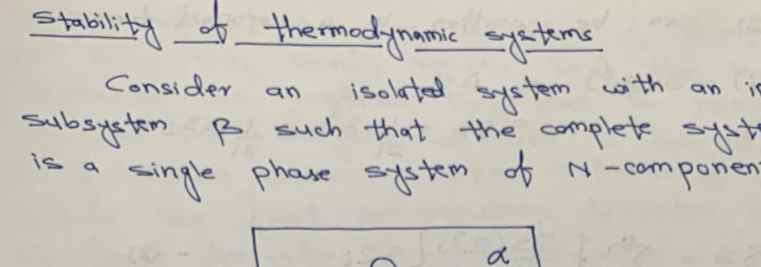 Stability of thermodynamic systems
Consider an isolated system with an
subsystem β such that the complete
is a single phase system of N-component
α